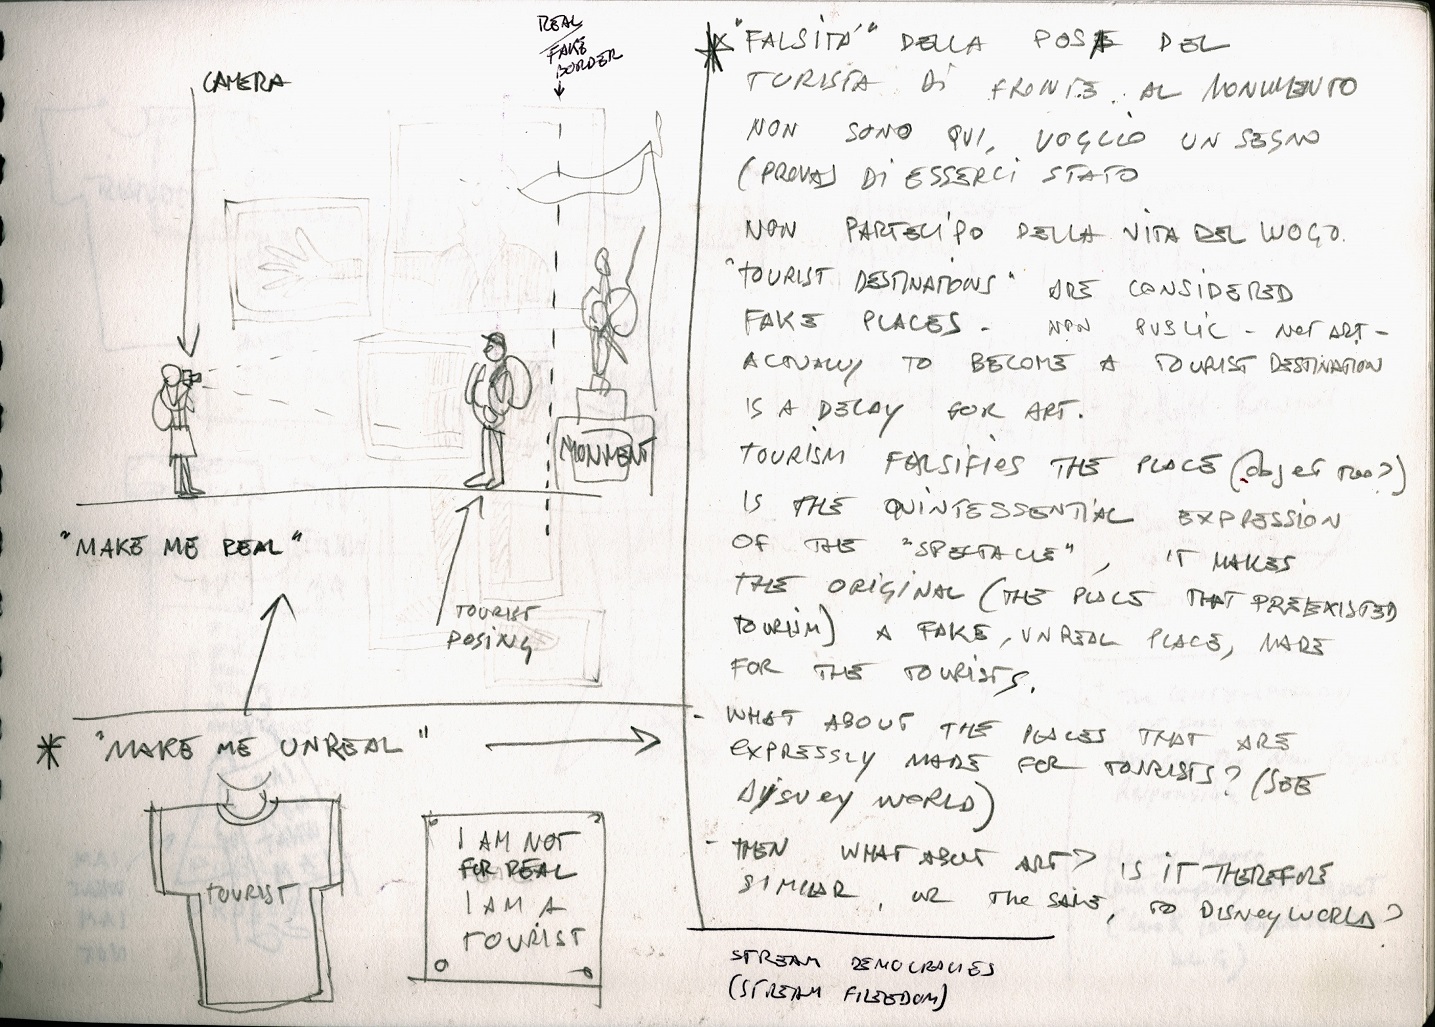 REAL
FAKE
BORDER
CAMERA
MONMENT
"MAKE ME REAL"
TOURIST
POSING
* "MAKE ME UNREAL"
TOURIST
I AM NOT
FOR REAL
I AM A
TOURIST
* "FALSITA'" DELLA POSE DEL
TURISTA DI FRONTE AL MONUMENTO
NON SONO QUI, VOGLIO UN SEGNO
(PROVA) DI ESSERCI STATO
NON PARTECIPO DELLA VITA DEL LUOGO.
"TOURIST DESTINATIONS" ARE CONSIDERED
FAKE PLACES - NON PUBLIC - NOT ART -
ACTUALLY TO BECOME A TOURIST DESTINATION
IS A DELAY FOR ART.
TOURISM FALSIFIES THE PLACE (object too?)
IS THE QUINTESSENTIAL EXPRESSION
OF THE "SPECTACLE", IT MAKES
THE ORIGINAL (THE PLACE THAT PREEXISTED
TOURISM) A FAKE, UNREAL PLACE, MADE
FOR THE TOURISTS.
- WHAT ABOUT THE PLACES THAT ARE
EXPRESSLY MADE FOR TOURISTS? (SEE
DISNEY WORLD)
- THEN WHAT ABOUT ART? IS IT THEREFORE
SIMILAR, OR The SAME, TO DISNEYWORLD?
STREAM DEMOCRACIES
(STREAM FREEDOM)